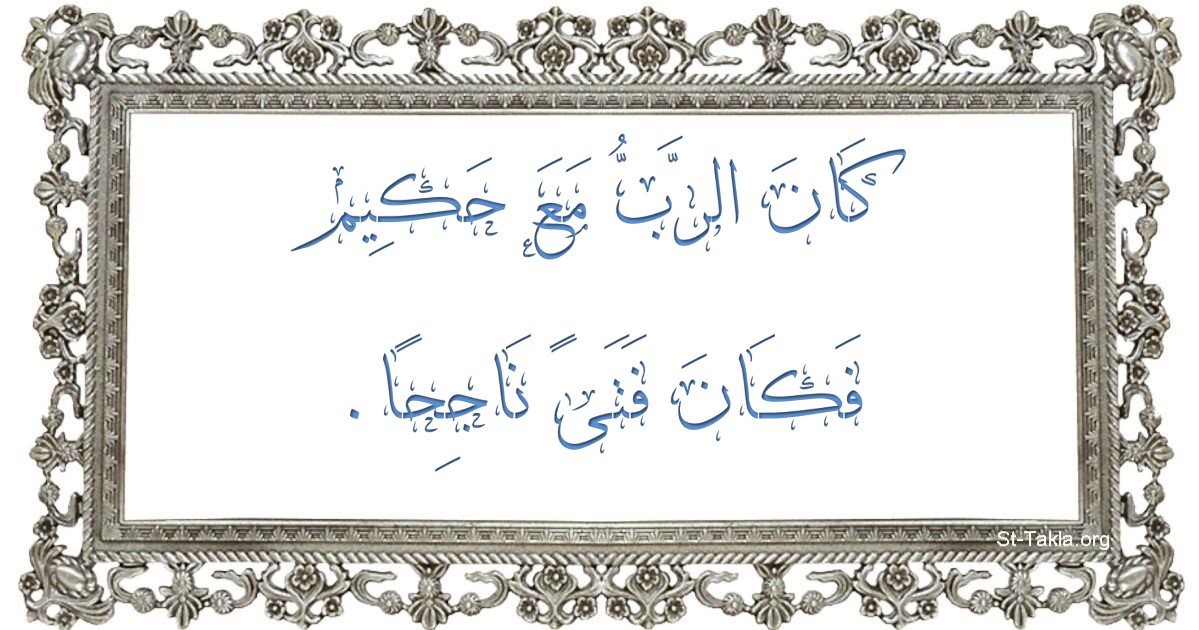 كَانَ الرَّبُّ مَعَ حَكِيم
فَكَانَ فَتَىً نَاجِحًا.
St-Takla.org